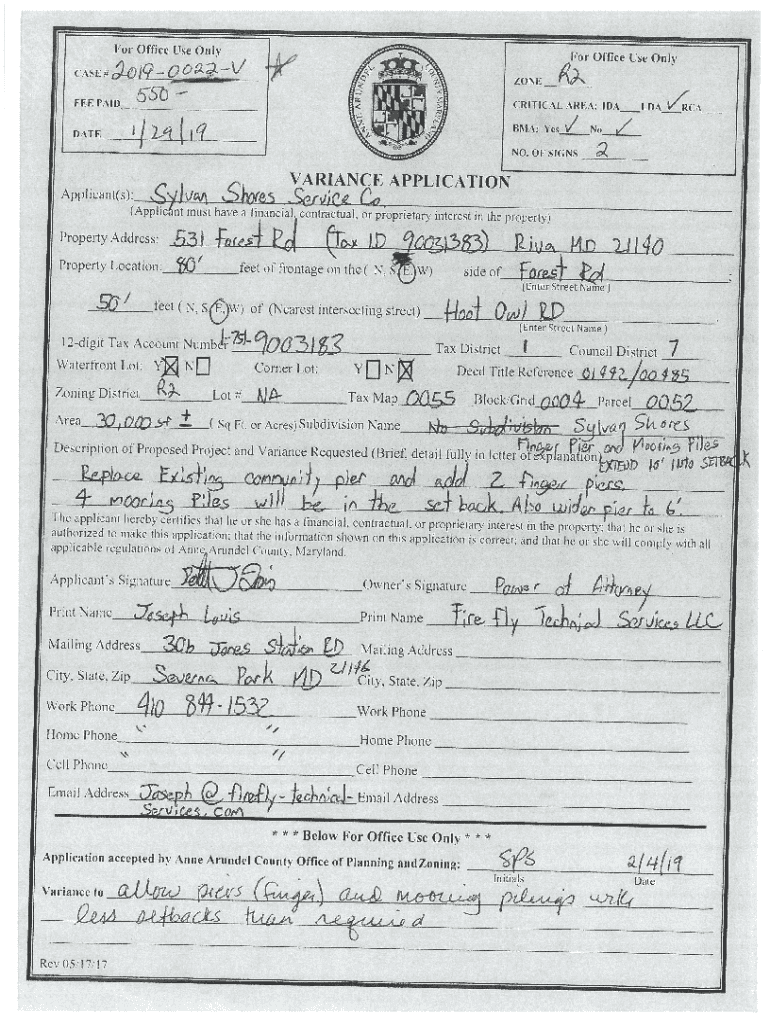 For Office Use Only
CASE# 2019-0022-V
FEE PAID 550-
DATE 1/29/19
ANNE ARUNDEL COUNTY MARYLAND
For Office Use Only
ZONE R2
CRITICAL AREA: IDA LDA ✓ RCA
BMA: Yes ✓ No ✓
NO. OF SIGNS 2
VARIANCE APPLICATION
Applicant(s): Sylvan Shores Service Co.
(Applicant must have a financial, contractual, or proprietary interest in the property)
Property Address: 531 Forest Rd (Tax ID 90031383) Riva MD 21140
Property Location: 80' feet of frontage on the ( N, S, E, W) side of Forest Rd
(Enter Street Name )
50' feet ( N, S, E, W) of (Nearest intersecting street) Hoot Owl RD
(Enter Street Name )
12-digit Tax Account Number 1-751-9003183 Tax District 1 Council District 7
Waterfront Lot: Y ☒ N ☐ Corner Lot: Y ☐ N ☒ Deed Title Reference 01492/00485
Zoning District R2 Lot # NA Tax Map 0055 Block/Grid 0004 Parcel 0052
Area 30,000 SF ± ( Sq Ft. or Acres) Subdivision Name No Subdivision Sylvan Shores
Description of Proposed Project and Variance Requested (Brief, detail fully in letter of explanation) Finger Pier and Mooring Piles
EXTEND 15' INTO SETBACK
Replace Existing community pier and add 2 finger piers.
4 mooring Piles will be in the set back. Also wider pier to 6'.
The applicant hereby certifies that he or she has a financial, contractual, or proprietary interest in the property; that he or she is
authorized to make this application; that the information shown on this application is correct; and that he or she will comply with all
applicable regulations of Anne Arundel County, Maryland.
Applicant's Signature Owner's Signature Power of Attorney
Print Name Joseph Louis Print Name Fire fly Technical Services LLC
Mailing Address 306 Jones Station RD Mailing Address
City, State, Zip Severna Park MD 21146 City, State, Zip
Work Phone 410 844-1532 Work Phone
Home Phone " " Home Phone
Cell Phone " " Cell Phone
Email Address Joseph @ firefly-technical- Email Address
Services.com
* * * Below For Office Use Only * * *
Application accepted by Anne Arundel County Office of Planning and Zoning: SPS 2/4/19
Initials Date
Variance to allow piers (finger) and mooring pilings with
less setbacks than required
Rev 05/17/17